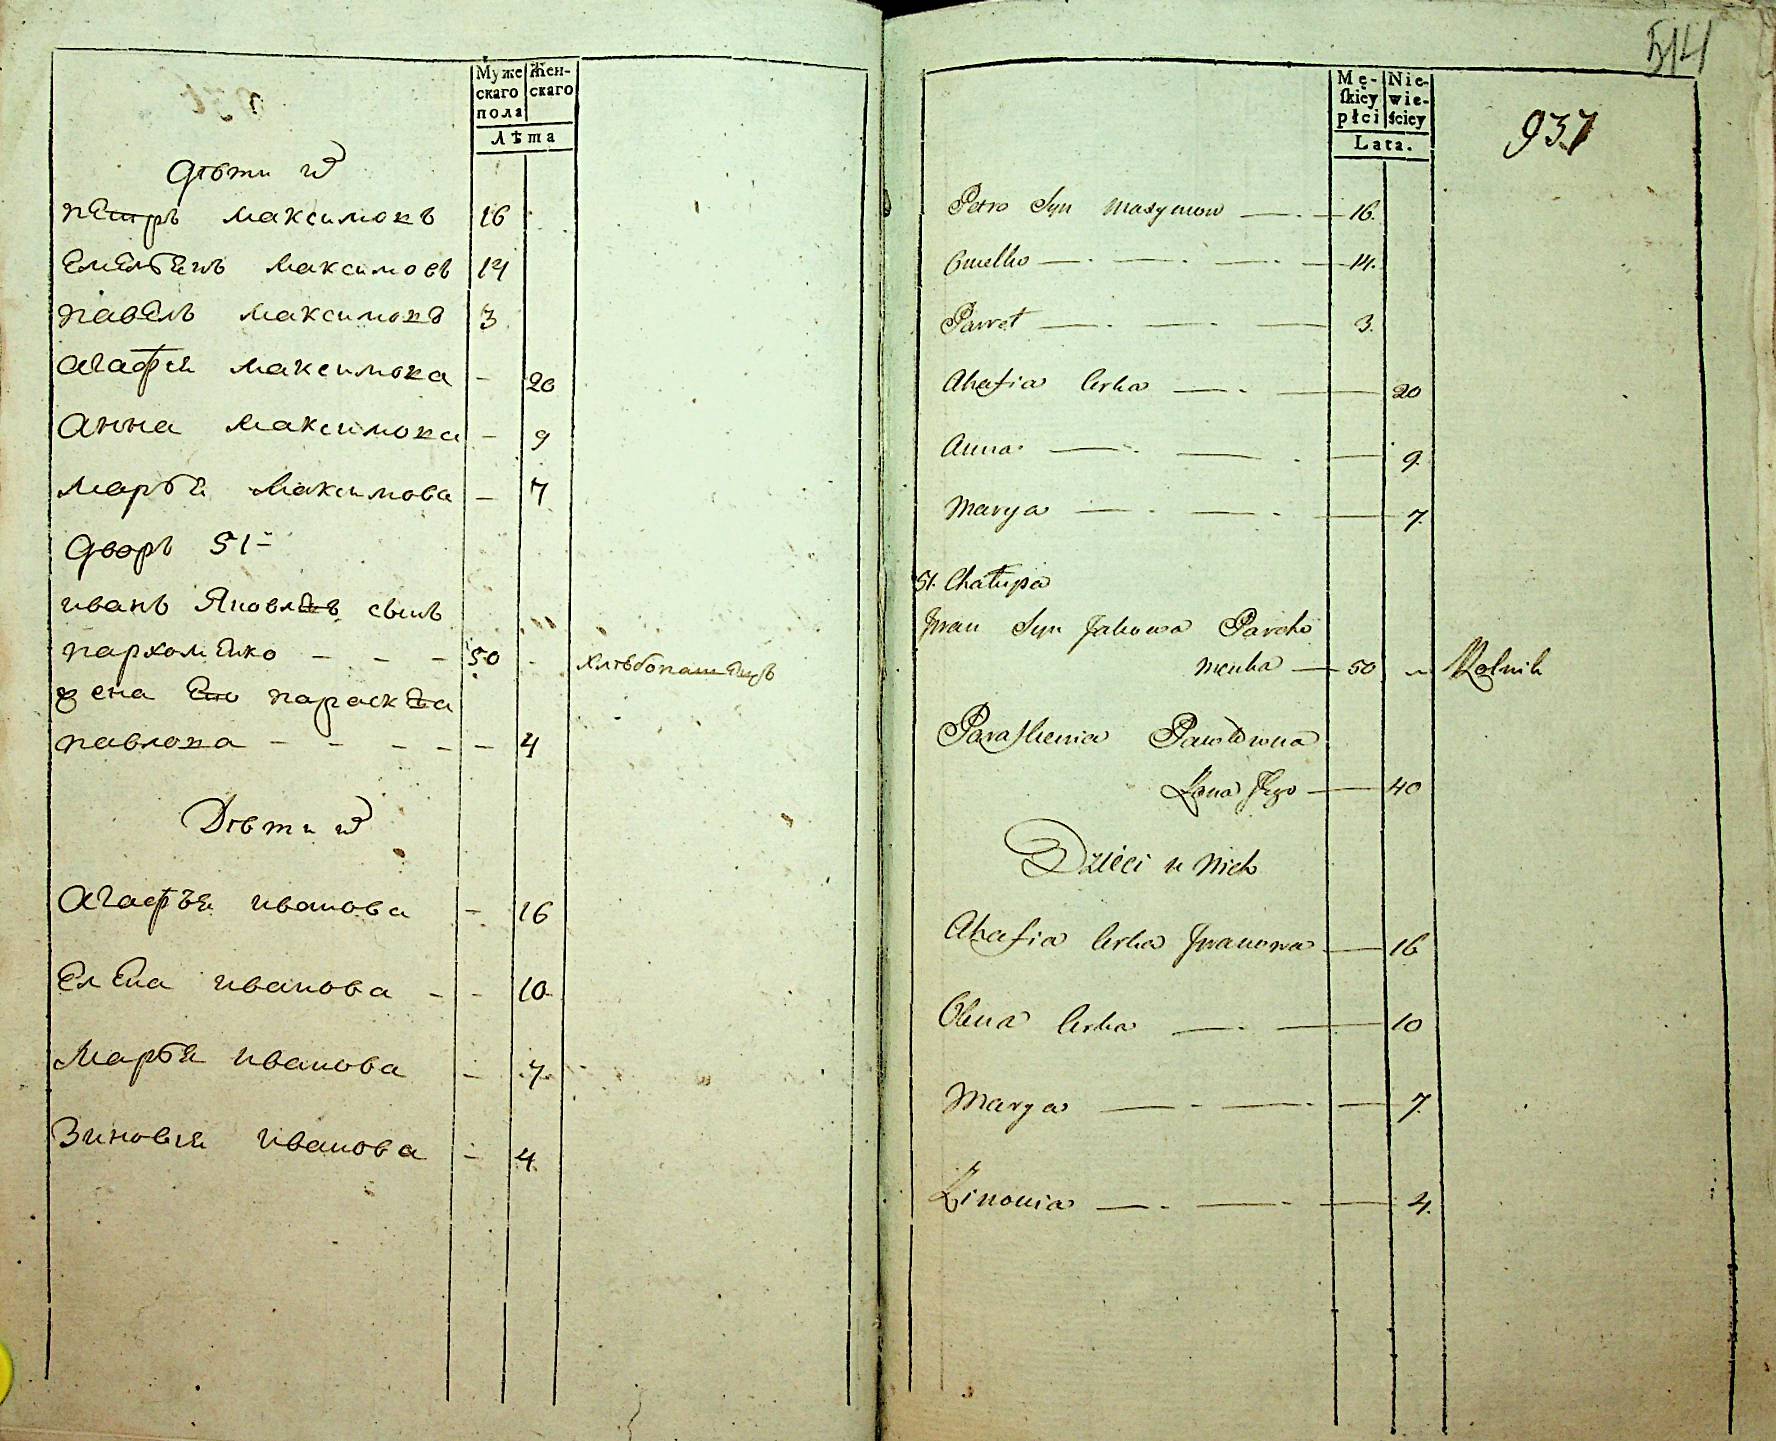 Муже Жен-
скаго скаго
пола
Лѣта
Дѣти ихъ
Петръ Максимовъ 16
Емельянъ Максимовъ 14
Павелъ Максимовъ 3
Агафия Максимова - 20
Анна Максимова - 9
Марья Максимова - 7
Дворъ 51-
Иванъ Яковлевъ сынъ
Пархоменко - - - 50 - хлѣбопашецъ
Жена Его параскева
Павлова - - - - - 4
Дѣти ихъ
Агафья Иванова - 16
Елена Иванова - - 10
Марья Иванова - 7
Зиновия Иванова - 4
514
Mę- Nie-
skiey wie-
płci ściey
Lata.
937
Petro Syn Maxymow 16.
Omelko 14.
Paweł 3.
Ahafia Corka 20
Anna 9.
Marya 7.
51. Chałupa
Jwan Syn Jakowa Parcho
menka 50 Rolnik
Paraskewia Pawłowna
Żona Jego 40
Dzieci u nich
Ahafia Corka Jwanowa 16
Olena Corka 10
Marya 7.
Zinowia 4.